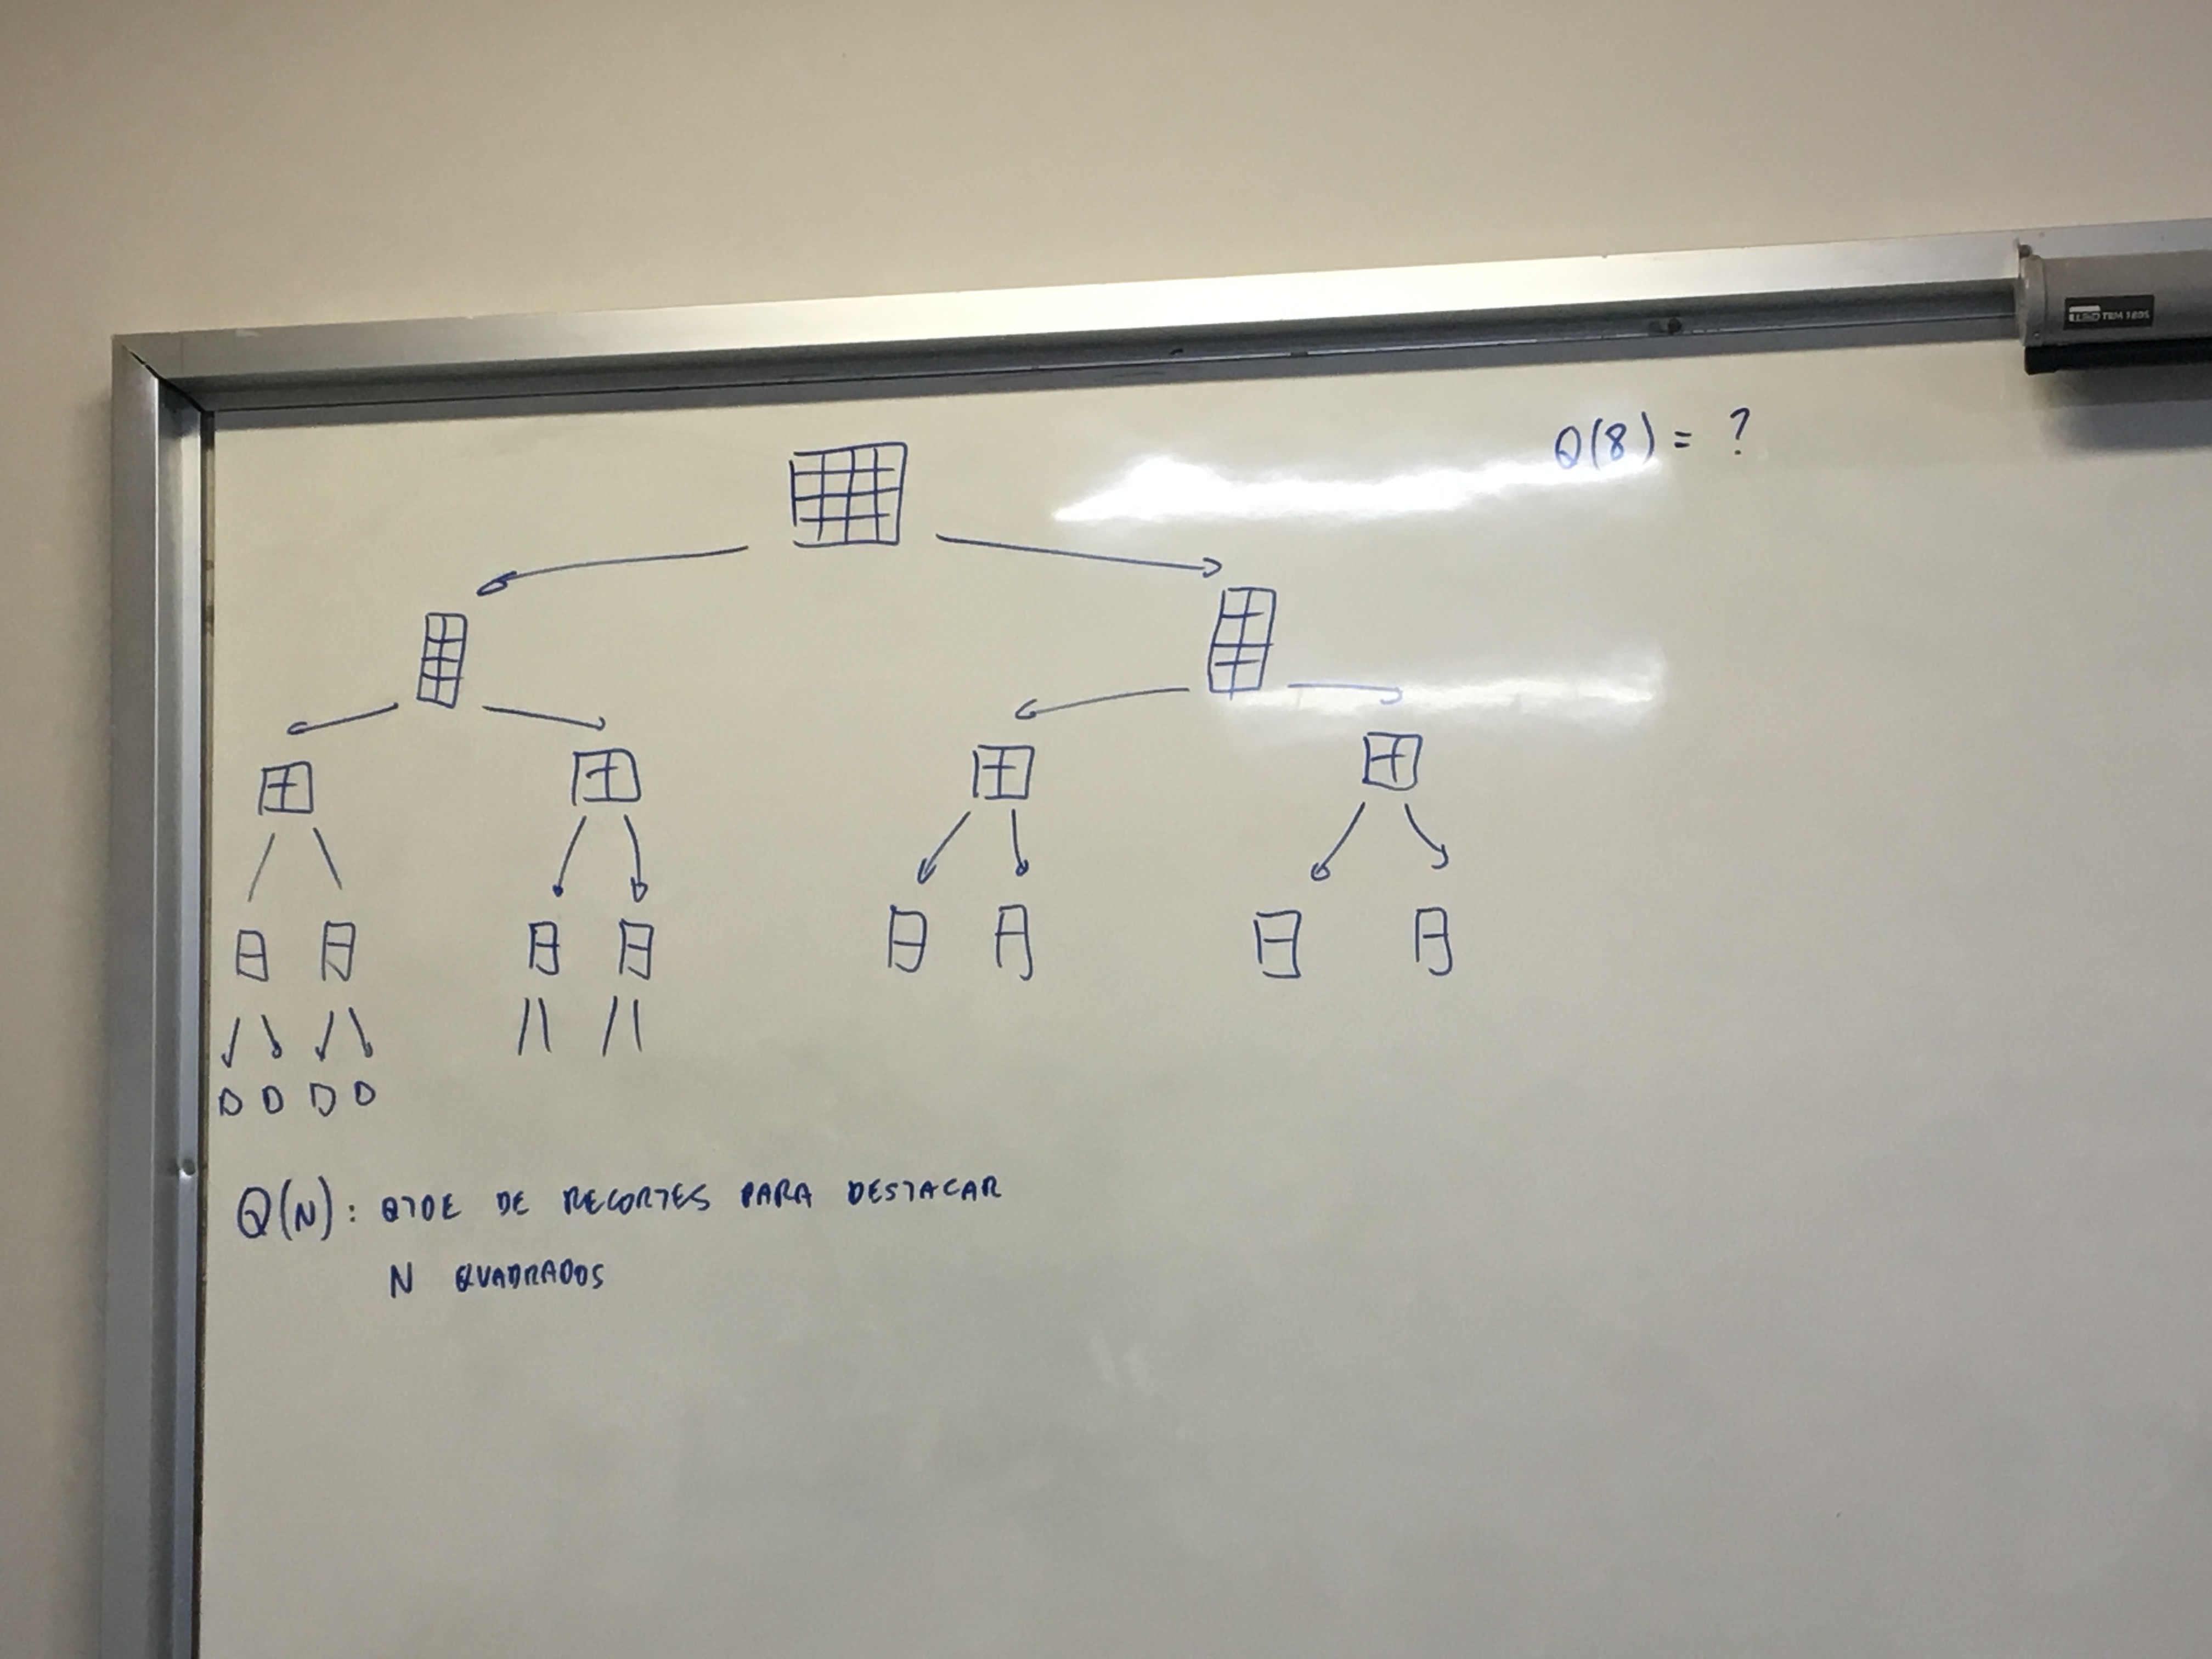 Q(8) = ?
Q(N): QTDE DE RECORTES PARA DESTACAR
N QUADRADOS